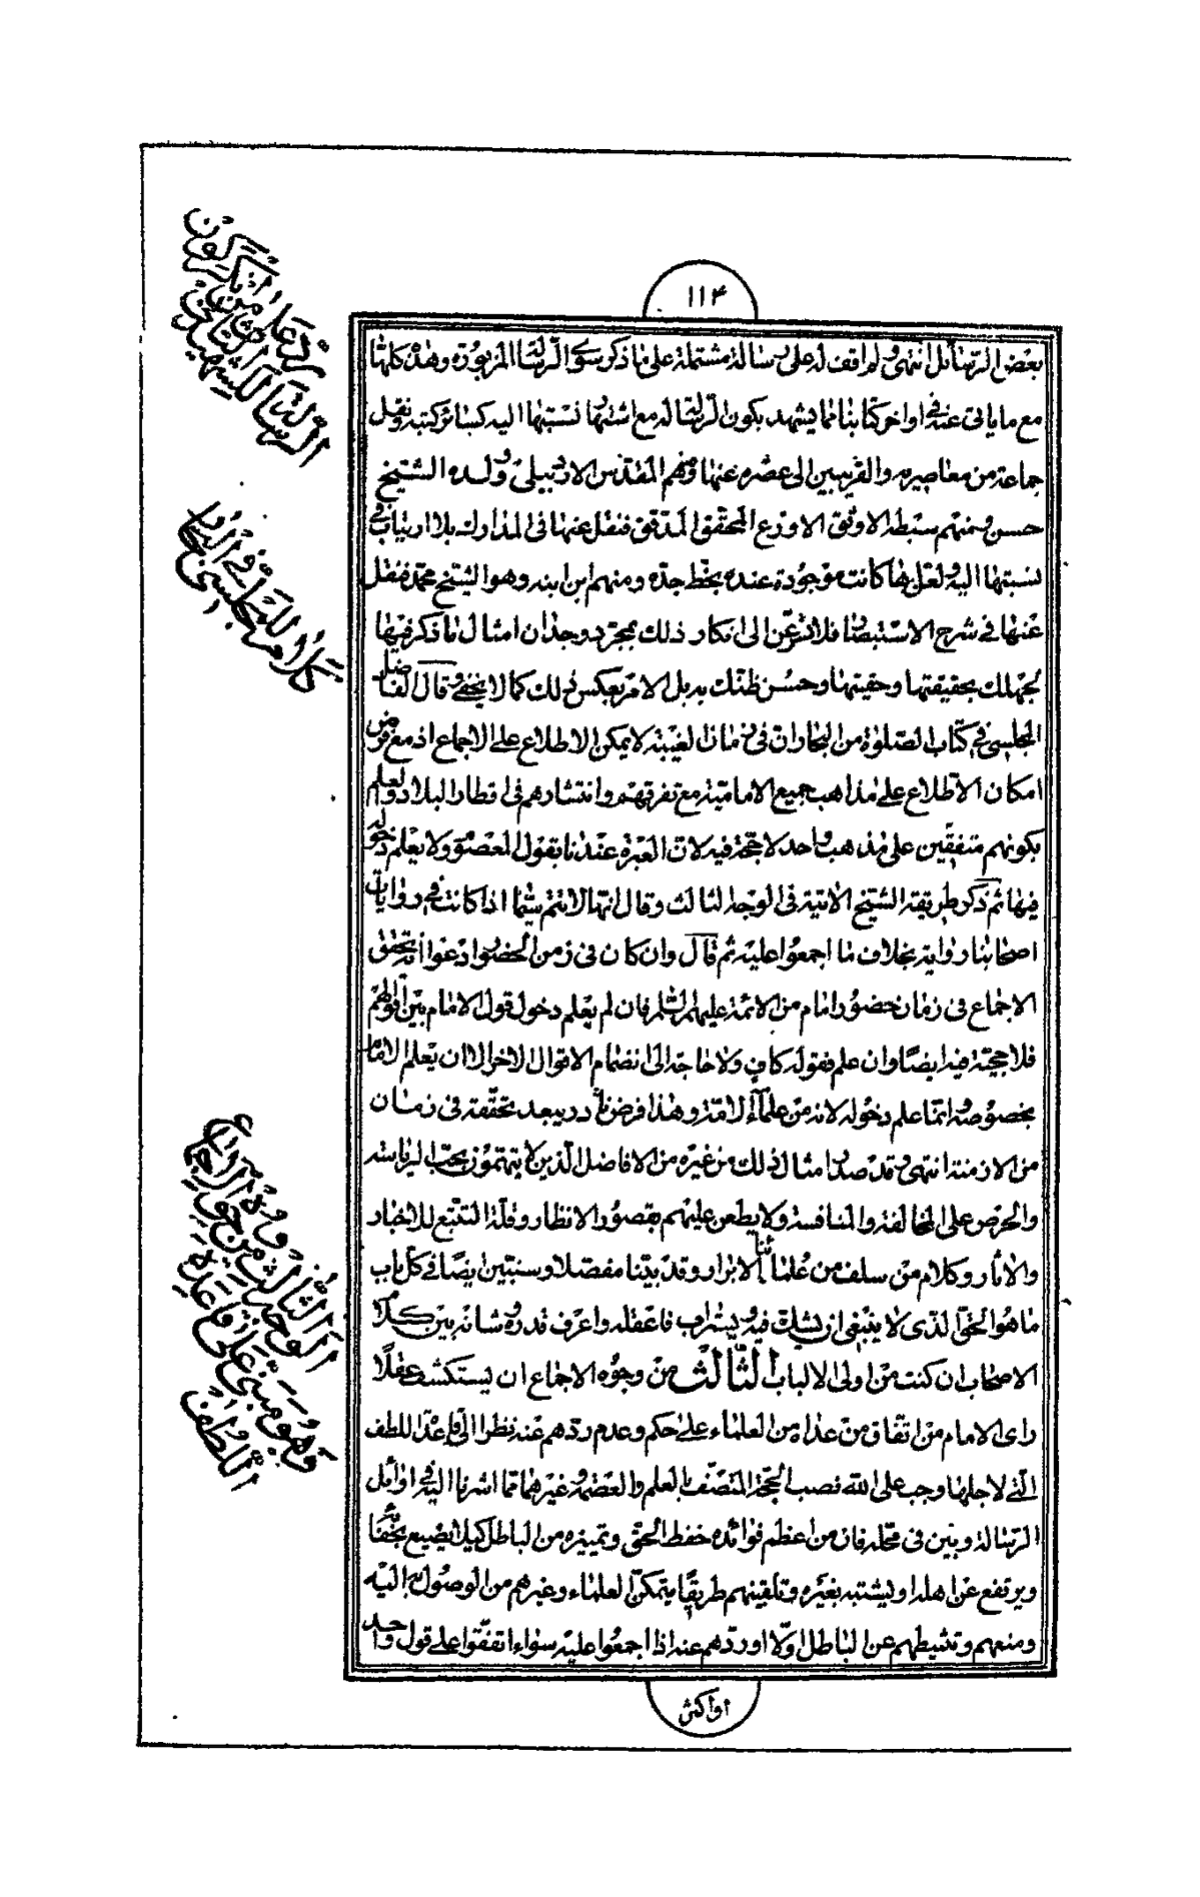 ١١٤
بعض الرسائل انتهى ولم اقف له على رسالة مشتملة على ما ذكر سوى الرسالة المزبورة وهذه كلها
مع ما ياتى عنه فى اواخر كتابنا مما يشهد بكون الرسالة له مع اشتهار نسبتها اليه كسائر كتبه ونقل
جماعة من معاصريه والقريبين الى عصره عنها ومنهم المقدس الاردبيلى وولده الشيخ
حسن ومنهم سبطه الاوثق الاورع المحقق المدقق فنقل عنها فى المدارك بلا ارتياب فى
نسبتها اليه ولعل بها كانت موجودة عنده بخط جده ومنهم ابن ابنه وهو الشيخ محمد فنقل
عنها فى شرح الاستبصار فلا تسرعن الى انكار ذلك بمجرد وجدان امثال ما ذكر فيها
لجهلك بحقيقتها وحقيتها وحسن ظنك به بل الامر بعكس ذلك كما لا يخفى وقال الفاضل
المجلسى فى كتاب الصلوة من البحار ان فى زمان الغيبة لا يمكن الاطلاع على الاجماع اذ مع فرض
امكان الاطلاع على مذاهب جميع الامامية مع تفرقهم وانتشارهم فى اقطار البلاد والعلم
بكونهم متفقين على مذهب واحد لا حجة فيه لان العبرة عندنا بقول المعصوم ولا يعلم دخوله
فيها ثم ذكر طريقة الشيخ الاتية فى الوجه الثالث وقال انها لا تتم سيما اذا كانت فى روايات
اصحابنا رواية بخلاف ما اجمعوا عليه ثم قال وان كان فى زمن الحضور وادعوا انه تحقق
الاجماع فى زمان حضور امام من الائمة عليهم السلام فان لم يعلم دخول قول الامام بين اقوالهم
فلا حجية فيه ايضا وان علم فقوله كاف ولا حاجة الى انضمام الاقوال الاخر الا ان يعلم الامام
بخصوصه انما علم دخوله لانه من علماء الامة وهذا فرض نادر يبعد تحققه فى زمان
من الازمنة انتهى وقد صدر امثال ذلك من غيره من الافاضل الذين لا يتهمون بحب الرياسة
والحرص على المخالفة والمنافسة ولا يطعن عليهم بقصور الانظار وقلة التتبع للاخبار
والاثار وكلام من سلف من علمائنا الابرار وقد بينا مفصلا وسنبين ايضا فى كل باب
ما هو الحق الذى لا ينبغى ان يشك فيه ويستراب فاعقله واعرف قدره وشانه بين كلام
الاصحاب ان كنت من اولى الالباب الثالث من وجوه الاجماع ان يستكشف عقلا
راى الامام من اتفاق من عداه من العلماء على حكم وعدم ردهم عنه نظرا الى قاعدة اللطف
التى لاجلها وجب على الله نصب الحجة المتصف بالعلم والعصمة وغيرهما مما اشرنا اليه فى اوائل
الرسالة وبين فى محله فان من اعظم فوائده حفظ الحق وتمييزه من الباطل كيلا يضيع بخفائه
ويرتفع عن اهله او يشتبه بغيره وتلقينهم طريقا يتمكن العلماء وغيرهم من الوصول به اليه
ومنعهم وتثبيطهم عن الباطل اولا او ردهم عنه اذا اجمعوا عليه سواء اتفقوا على قول واحد
او اكثر
يرد على
من انكر كون
الرسالة
للشهيد الثانى
كلام للمجلسى فى البحار
الوجه الثالث من وجوه الاجماع
وهو مبنى على قاعدة
اللطف